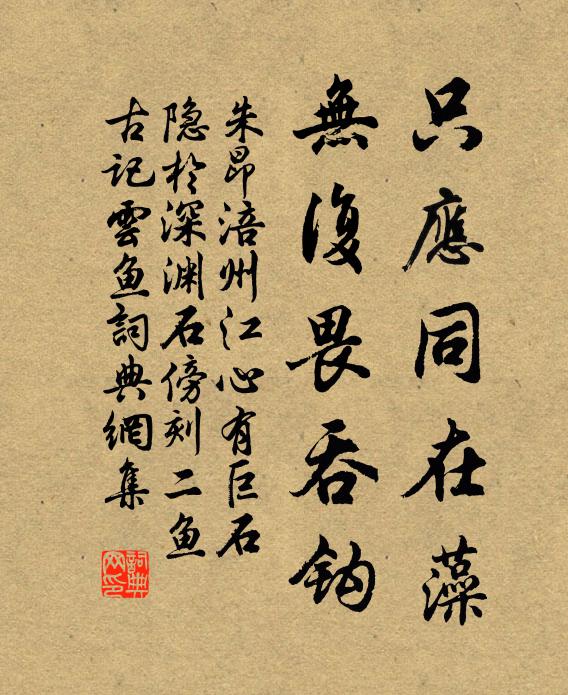 只應同在藻
無復畏吞鈎
朱昂涪州江心有巨石
隐於深渊石傍刻二鱼
古記雲鱼詞典網集
詞典
网印